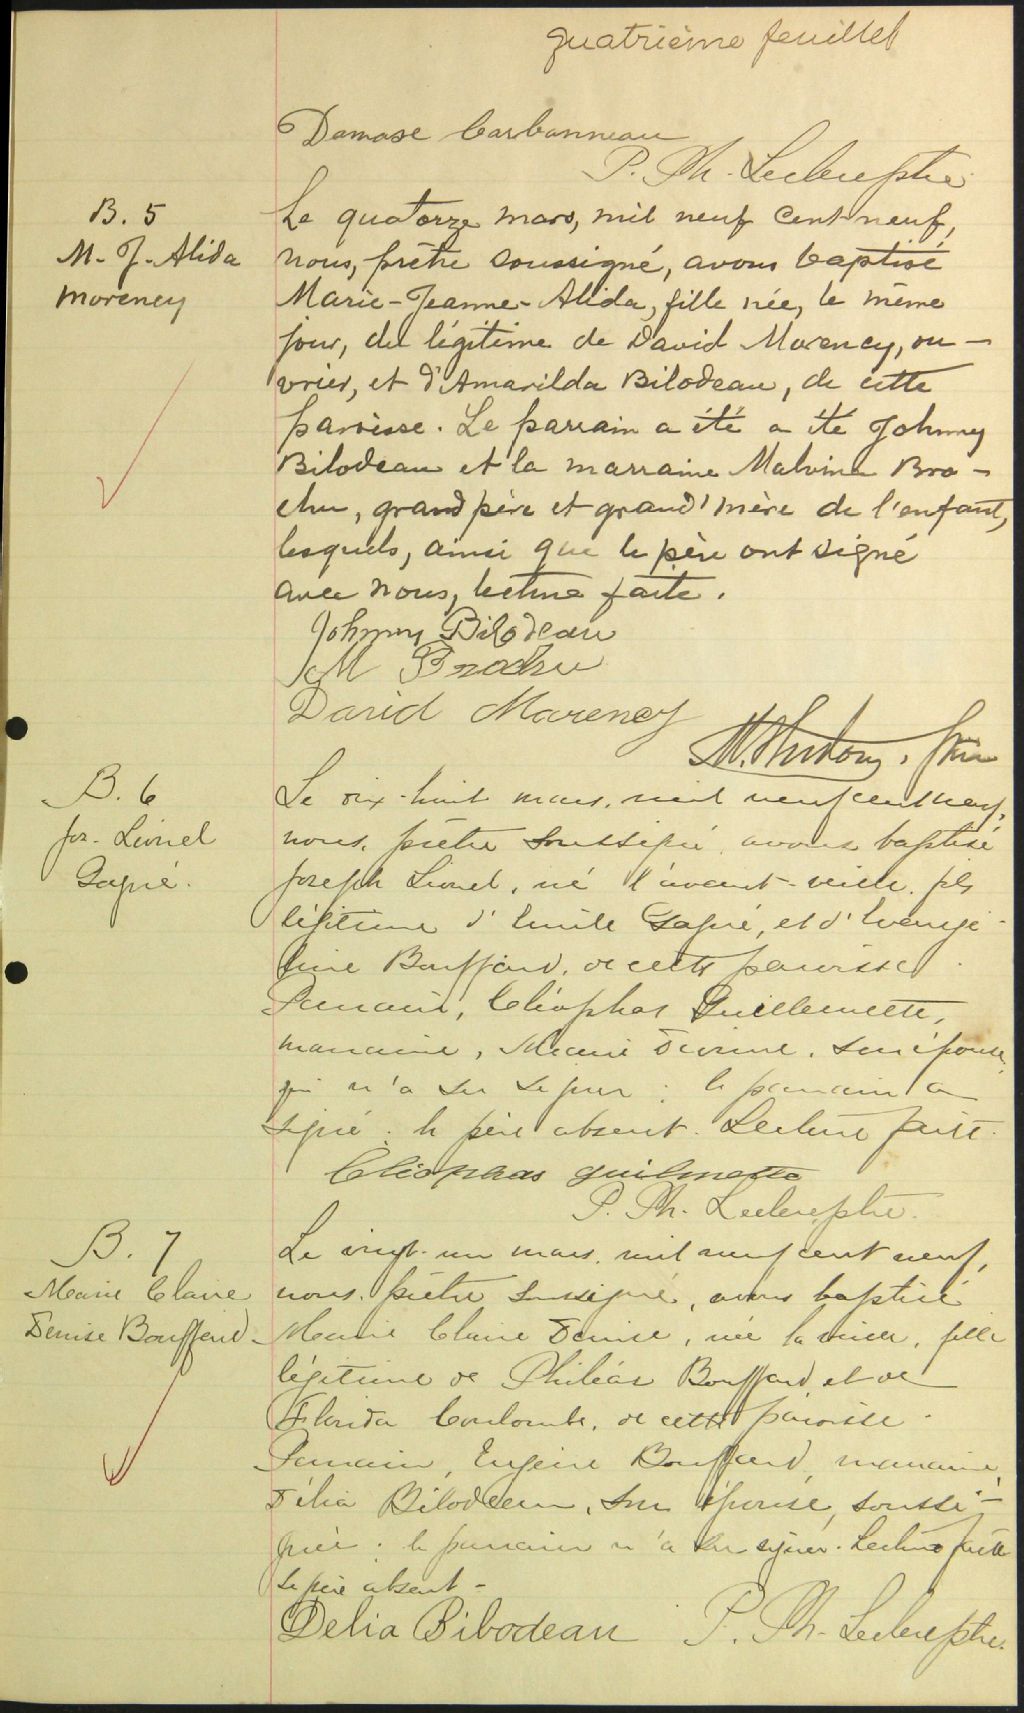 quatrième feuillet
Damase Carbonneau
P. Ph. Leclerc ptre
B. 5
M. J. Alida
Morency
Le quatorze mars, mil neuf cent neuf,
nous, prêtre soussigné, avons baptisé
Marie-Jeanne-Alida, fille née, le même
jour, du légitime de David Morency, ou-
vrier, et d'Amarilda Bilodeau, de cette
paroisse. Le parrain a été a été Johnny
Bilodeau et la marraine Malvina Bro-
chu, grand père et grand'mère de l'enfant,
lesquels, ainsi que le père ont signé
avec nous, lecture faite.
Johnny Bilodeau
M Brochu
David Morency
ptre
B. 6
Jos. Lionel
Gagné.
Le dix-huit mars, mil neuf cent neuf,
nous, prêtre soussigné, avons baptisé
Joseph Lionel, né l'avant-veille, fils
légitime d'Emile Gagné, et d'Evangé-
line Bouffard, de cette paroisse.
Parrain, Cléophas Guillemette,
marraine, Marie son épouse,
qui n'a su signer; le parrain a
signé; le père absent. Lecture faite.
Cléophas guilmette
P. Ph. Leclerc ptre.
B. 7
Marie Claire
Denise Bouffard
Le vingt-un mars, mil neuf cent neuf,
nous, prêtre soussigné, avons baptisé
Marie Claire Denise, née la veille, fille
légitime de Philéas Bouffard et de
Florida Coulombe, de cette paroisse.
Parrain, Eugène Bouffard, marraine,
Délia Bilodeau, son épouse, soussi-
gnée; le parrain n'a su signer. Lecture faite
Le père absent-
Delia Bilodeau P. Ph. Leclerc ptre.